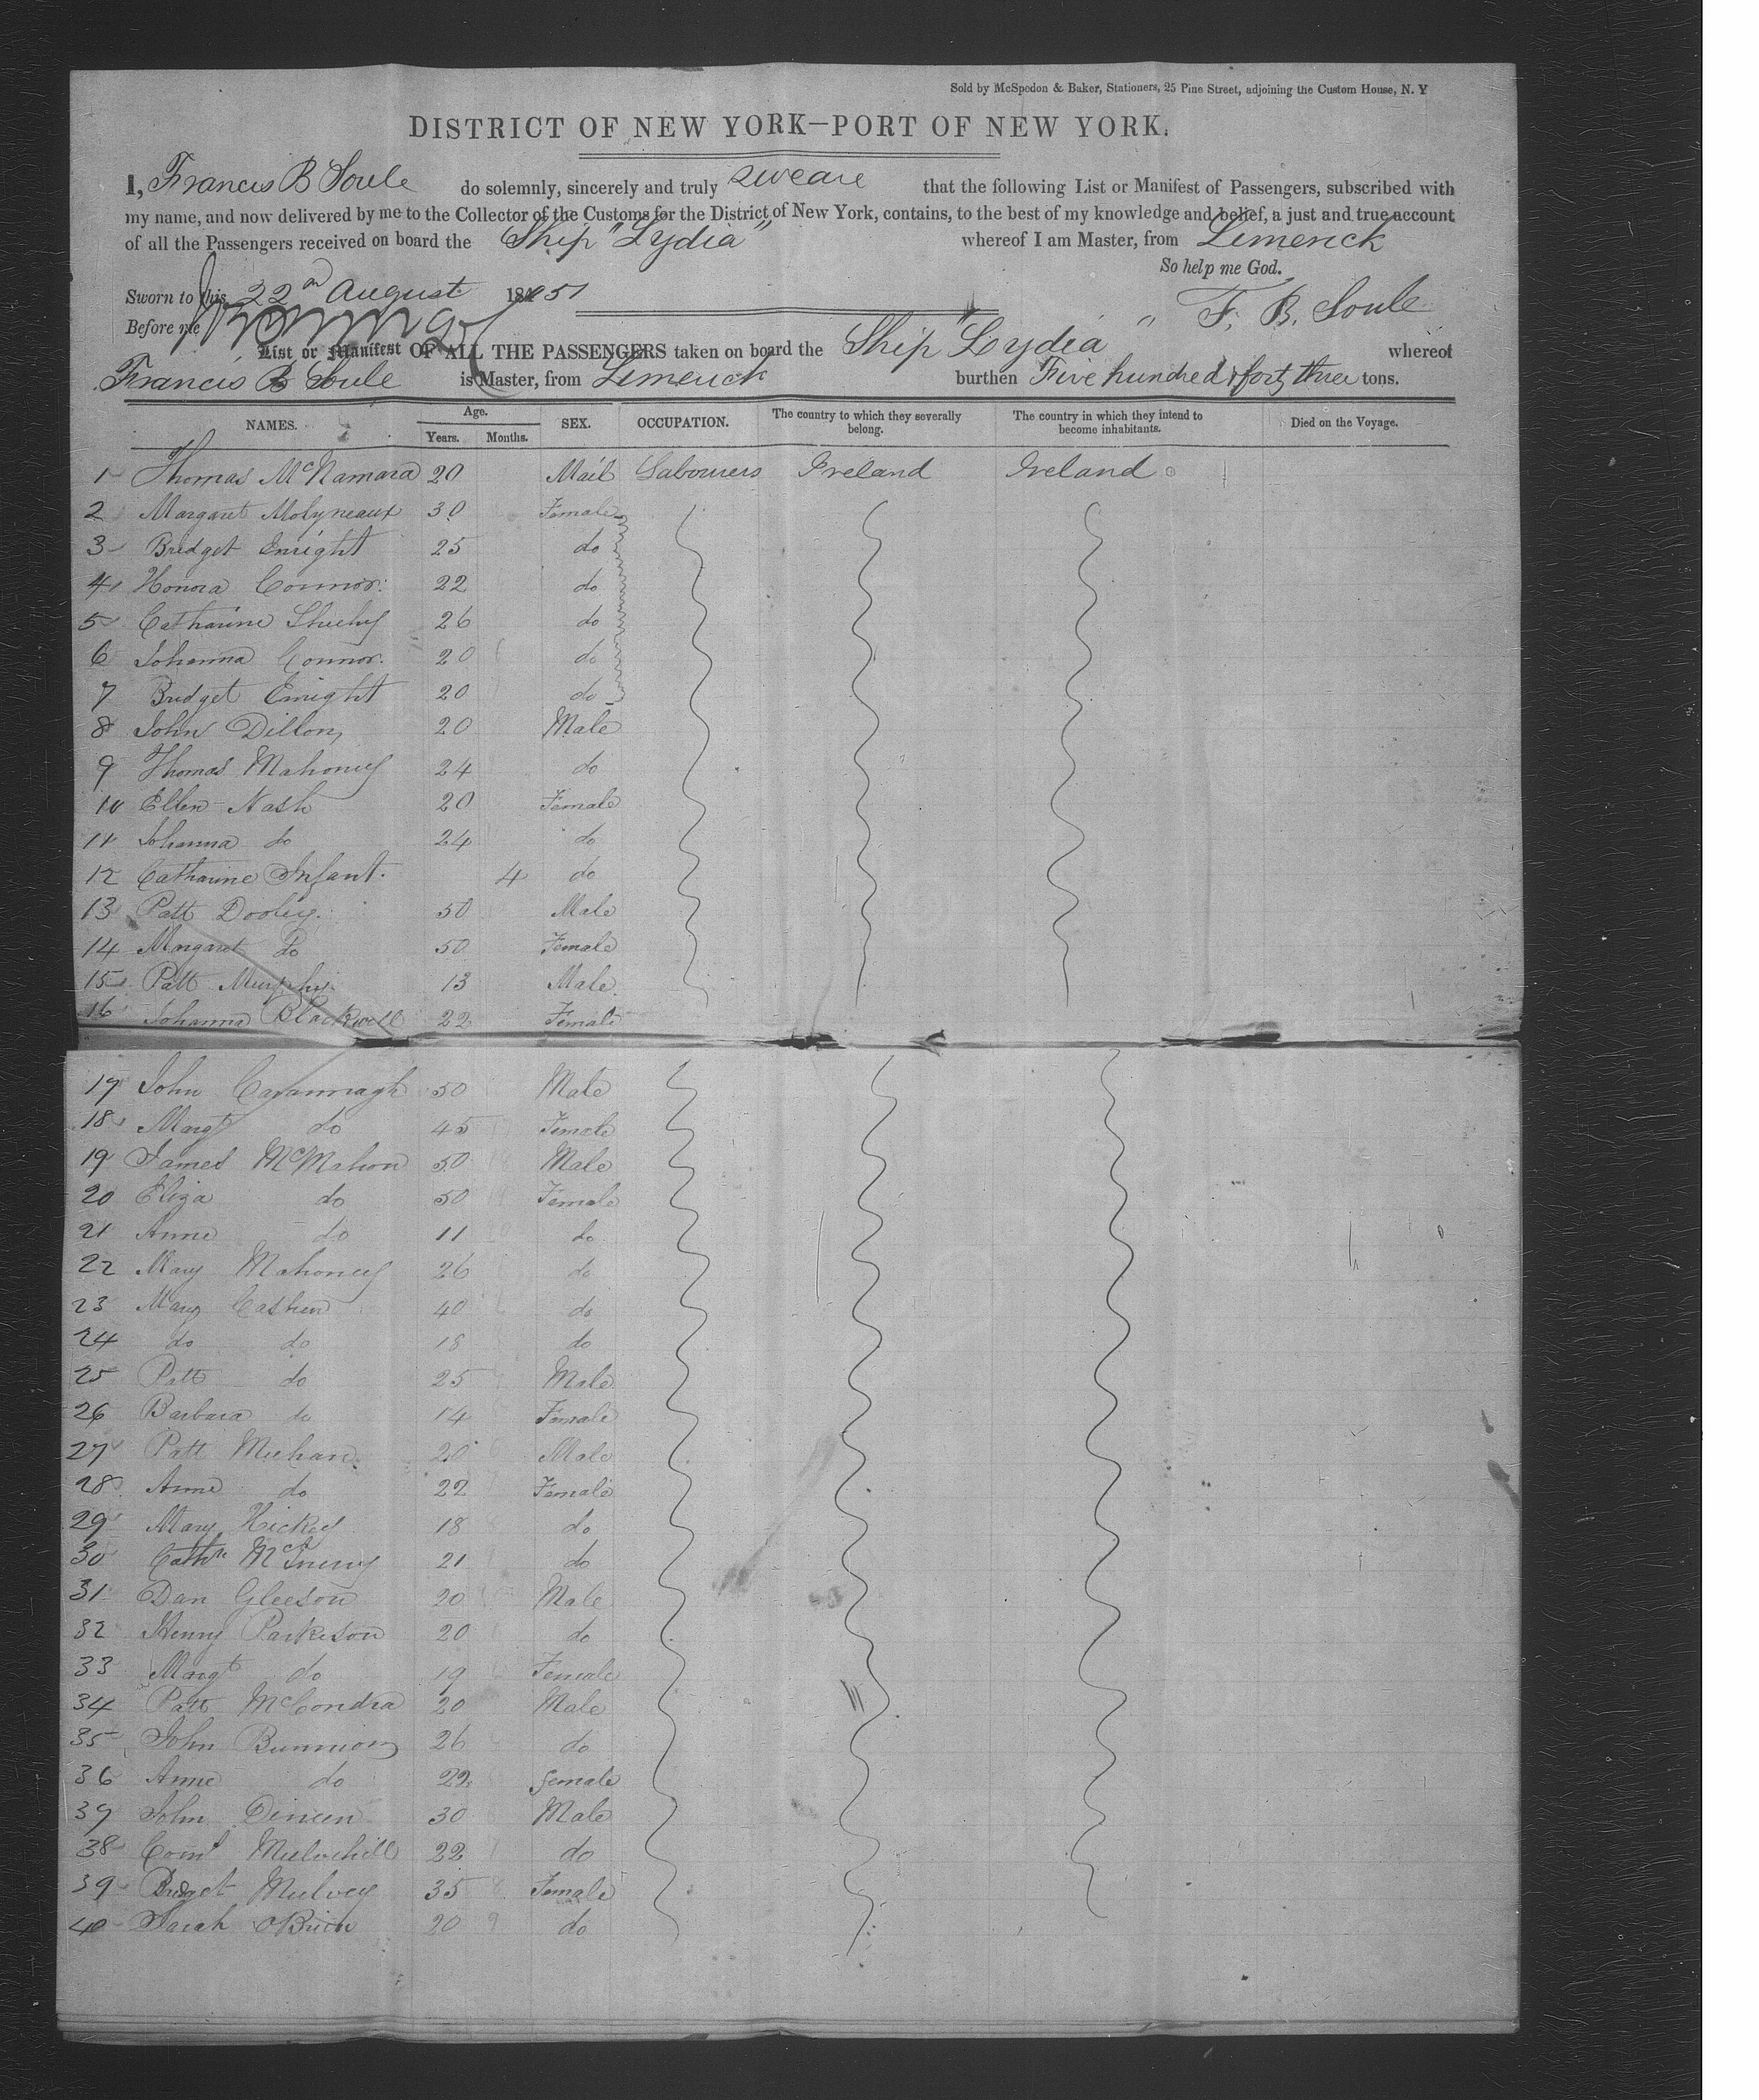 Sold by McSpedon & Baker, Stationers, 25 Pine Street, adjoining the Custom House, N. Y
DISTRICT OF NEW YORK—PORT OF NEW YORK.
I, Francis B Soule do solemnly, sincerely and truly sweare that the following List or Manifest of Passengers, subscribed with
my name, and now delivered by me to the Collector of the Customs for the District of New York, contains, to the best of my knowledge and belief, a just and true account
of all the Passengers received on board the Ship "Lydia" whereof I am Master, from Limerick
So help me God.
Sworn to this 22nd August 1851
F. B. Soule
Before me
List or Manifest OF ALL THE PASSENGERS taken on board the Ship "Lydia" whereof
Francis B Soule is Master, from Limerick burthen Five hundred & forty three tons.
NAMES. Age. Years. Months. SEX. OCCUPATION. The country to which they severally belong. The country in which they intend to become inhabitants. Died on the Voyage.
1 Thomas McNamara 20 Mail Labourers Ireland Ireland
2 Margaret Molyneaux 30 Female
3 Bridget Enright 25 do
4 Honora Connor. 22 do
5 Catharine Sheehy 26 do
6 Johanna Connor. 20 do
7 Bridget Enright 20 do
8 John Dillon 20 Male
9 Thomas Mahoney 24 do
10 Ellen Nash 20 Female
11 Johanna do 24 do
12 Catharine Infant. 4 do
13 Patt Dooley. 50 Male
14 Margaret Do 50 Female
15 Patt Murphy. 13 Male
16 Johanna Blackwell 22 Female
17 John Cavannagh 50 Male
18 Margt do 45 Female
19 James McMahon 50 Male
20 Eliza do 50 Female
21 Anne do 11 do
22 Mary Mahoney 26 do
23 Mary Cashen 40 do
24 do do 18 do
25 Patt do 25 Male
26 Barbara do 14 Female
27 Patt Meehan. 20 Male
28 Anne do 22 Female
29 Mary Hickey 18 do
30 Cathe McInerny 21 do
31 Dan Gleeson 20 Male
32 Henry Parkeson 20 do
33 Margt do 19 Female
34 Patt McCondra 20 Male
35 John Bunnion 26 do
36 Anne do 22 female
37 John Dineen 30 Male
38 Mulvehill 22 do
39 Bridget Mulvey 35 Female
40 Sarah OBrien 20 9 do